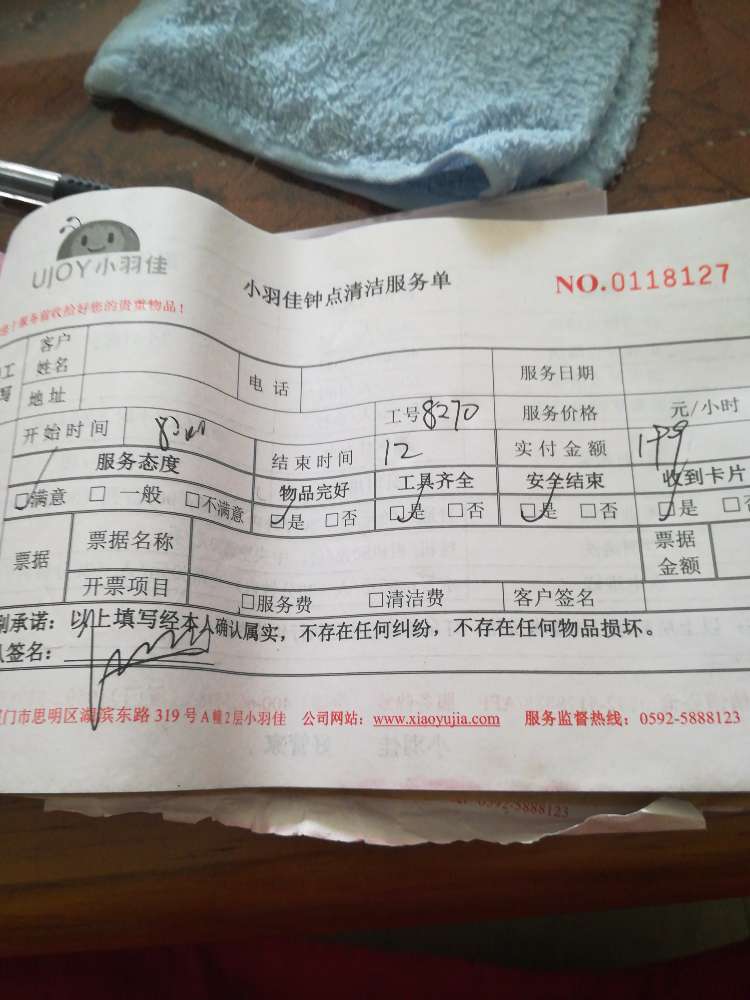 UJOY小羽佳
小羽佳钟点清洁服务单
NO.0118127
服务前收拾好您的贵重物品!
客户姓名 电话 服务日期
地址 工号8270 服务价格 元/小时
开始时间 结束时间 12 实付金额 179
服务态度 物品完好 工具齐全 安全结束 收到卡片
□满意 □一般 □不满意 □是 □否 □是 □否 □是 □否 □是
票据 票据名称 票据金额
开票项目 □服务费 □清洁费 客户签名
承诺:以上填写经本人确认属实,不存在任何纠纷,不存在任何物品损坏。
签名:
门市思明区湖滨东路319号A幢2层小羽佳 公司网站:www.xiaoyujia.com 服务监督热线:0592-5888123
0592-5888123